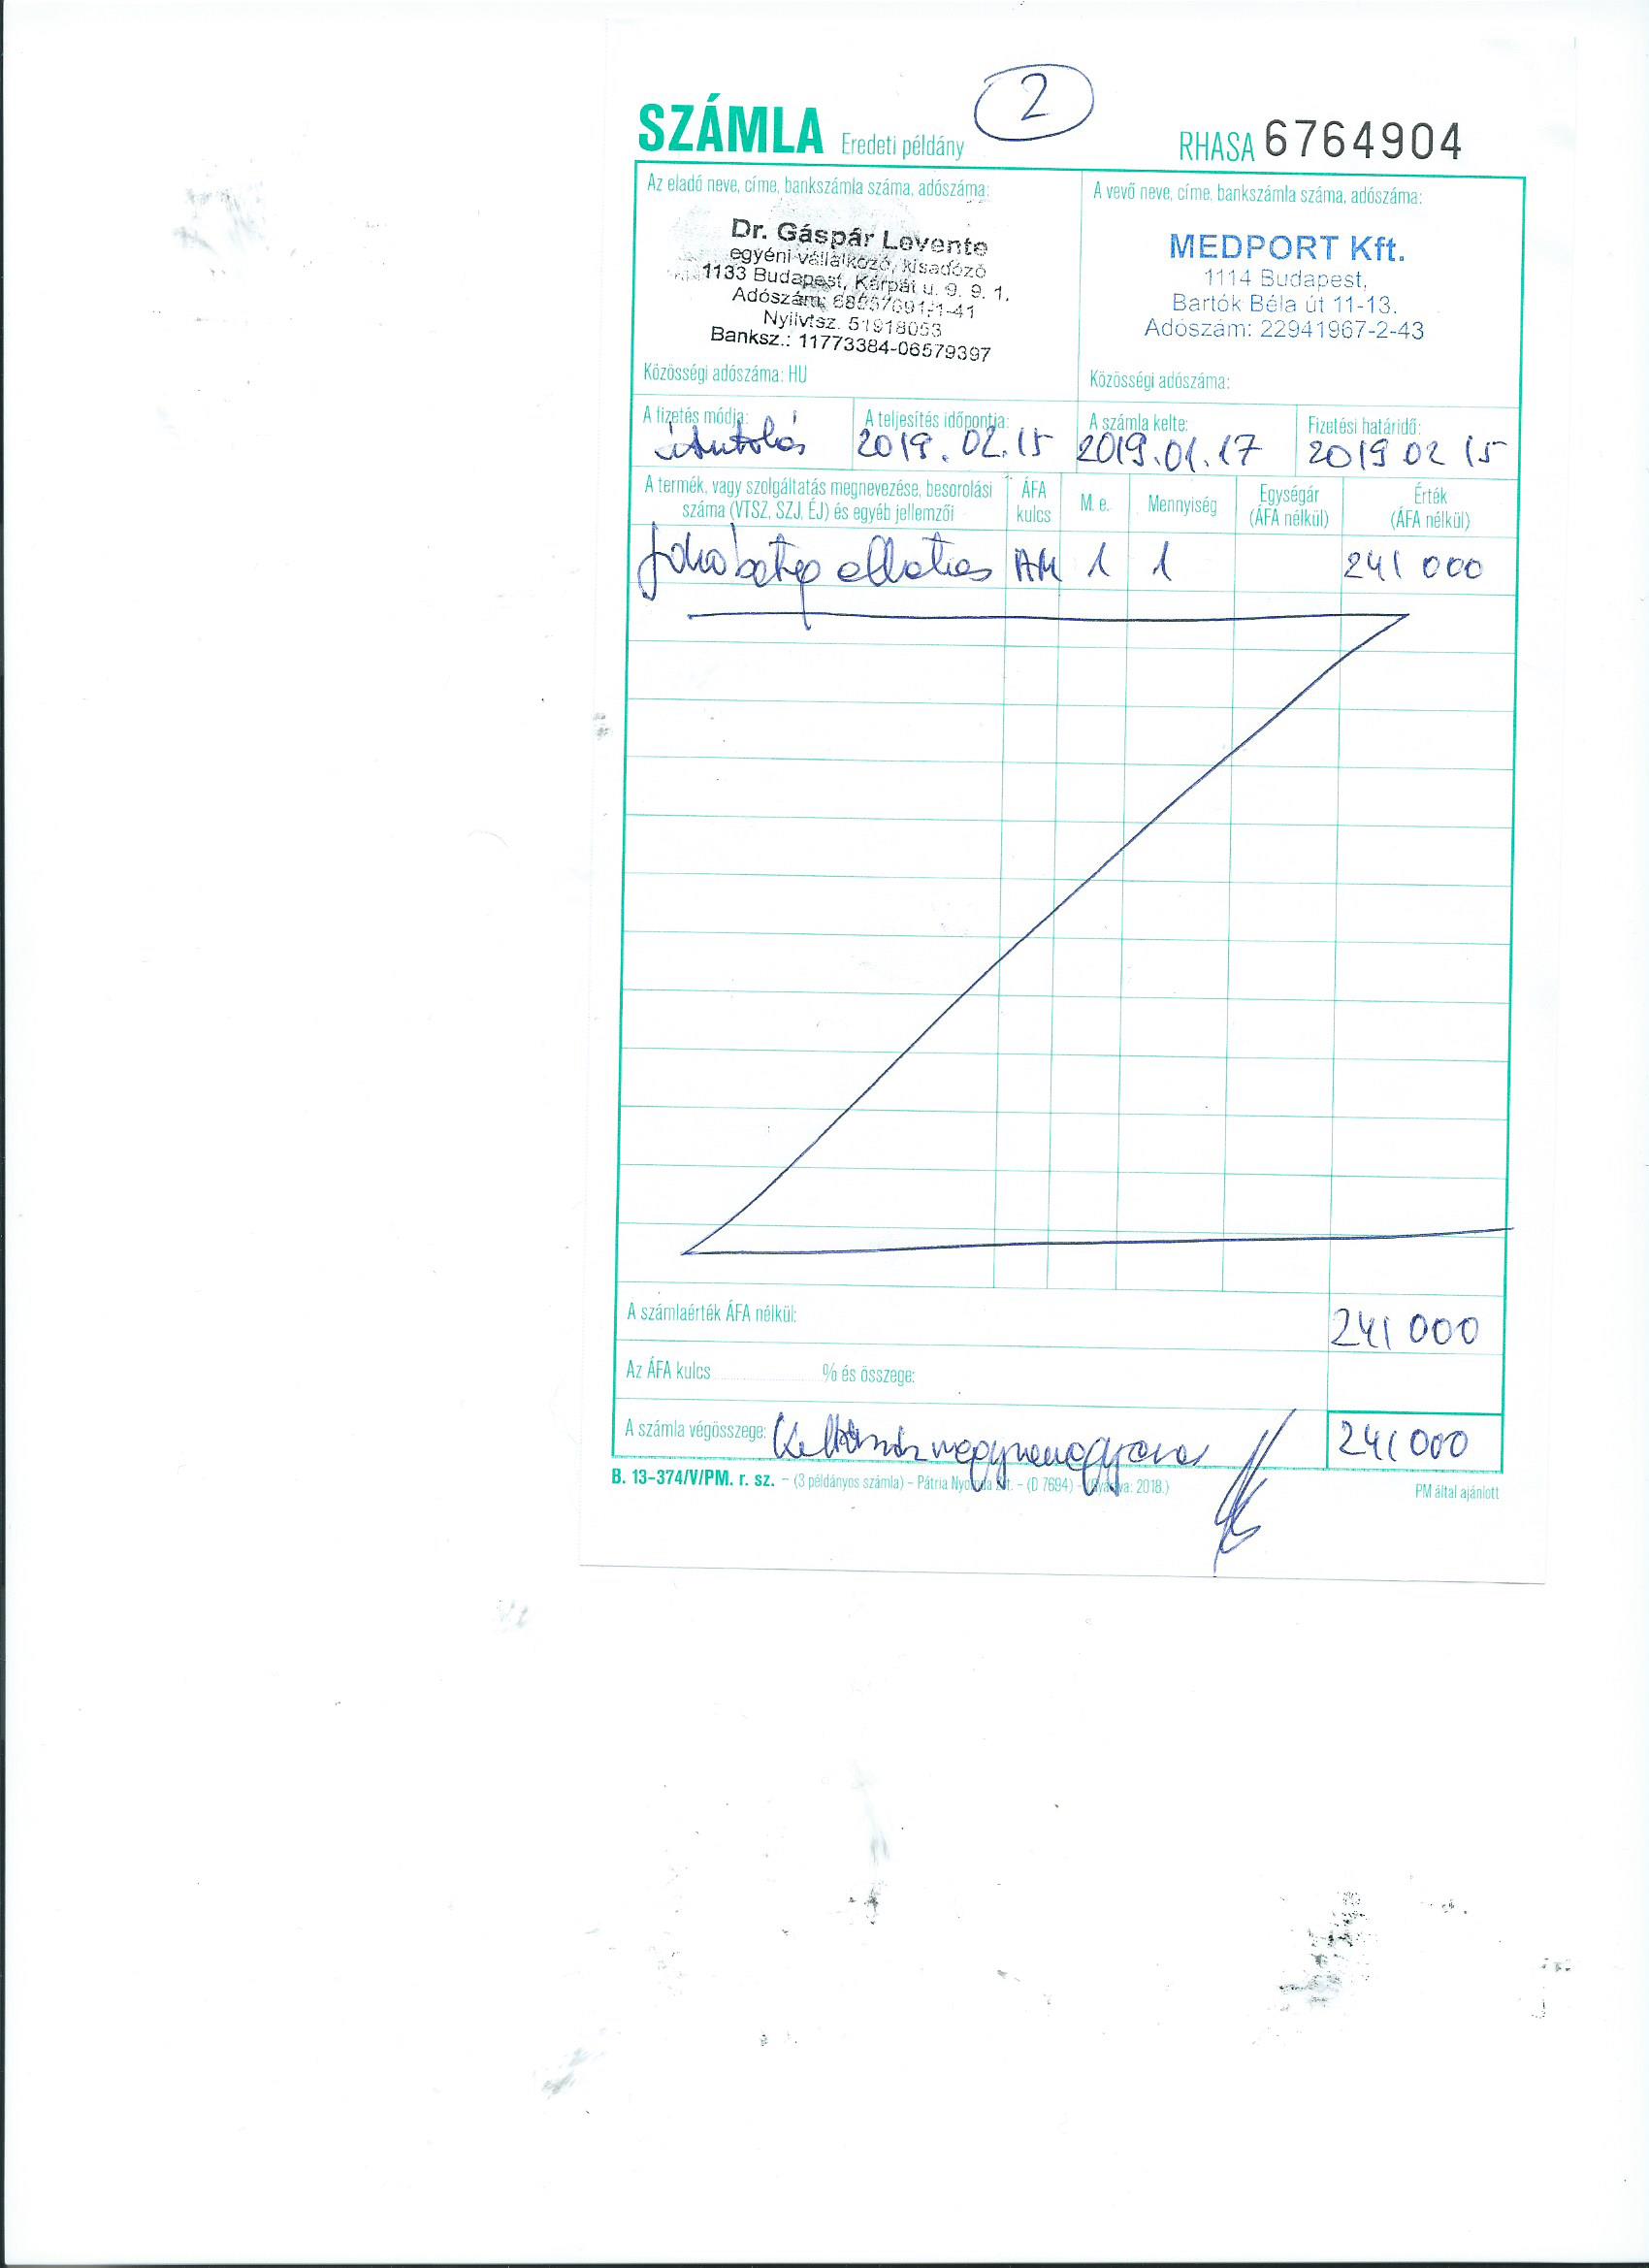 2
SZÁMLA Eredeti példány RHASA 6764904
Az eladó neve, címe, bankszámla száma, adószáma:
Dr. Gáspár Levente
egyéni vállalkozó, kisadózó
1133 Budapest, Kárpát u. 9. 9. 1.
Adószám:
Nyilvtsz. 51918053
Banksz.: 11773384-06579397
Közösségi adószáma: HU
A vevő neve, címe, bankszámla száma, adószáma:
MEDPORT Kft.
1114 Budapest,
Bartók Béla út 11-13.
Adószám: 22941967-2-43
Közösségi adószáma:
A fizetés módja: A teljesítés időpontja: A számla kelte: Fizetési határidő:
átutalás 2019.02.15 2019.01.17 2019 02 15
A termék, vagy szolgáltatás megnevezése, besorolási száma (VTSZ, SZJ, ÉJ) és egyéb jellemzői ÁFA kulcs M. e. Mennyiség Egységár (ÁFA nélkül) Érték (ÁFA nélkül)
AM 1 1 241 000
A számlaérték ÁFA nélkül: 241 000
Az ÁFA kulcs % és összege:
A számla végösszege: 241 000
B. 13-374/V/PM. r. sz. - (3 példányos számla) - Pátria Nyomda Zrt. - (D 7694) - (Nyomva: 2018.) PM által ajánlott